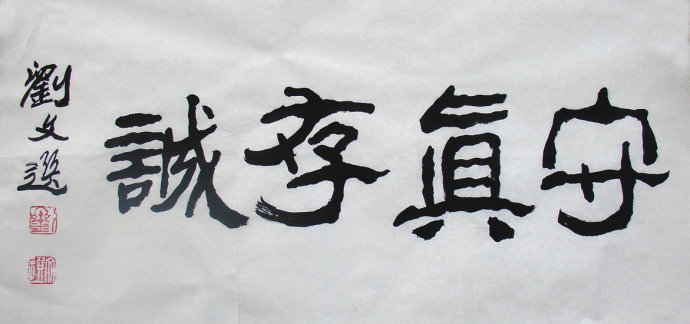 守眞存誠
劉文選